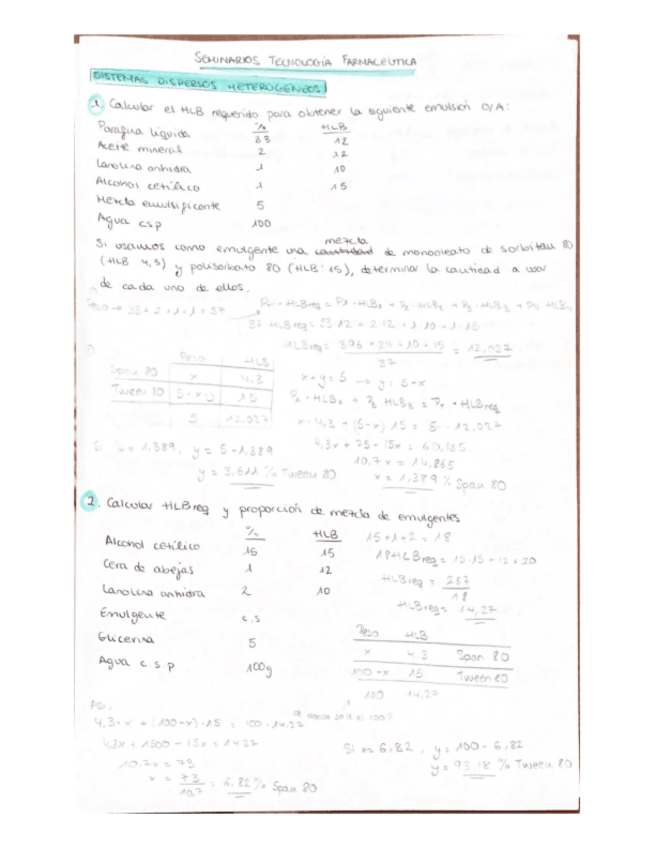 SEMINARIOS TECNOLOGÍA FARMACÉUTICA
SISTEMAS DISPERSOS HETEROGÉNEOS
1 Calcular el HLB requerido para obtener la siguiente emulsión O/A:
% HLB
Parafina líquida 33 12
Aceite mineral 2 12
Lanolina anhidra 1 10
Alcohol cetílico 1 15
Mezcla emulsificante 5
Agua csp 100
Si usamos como emulgente una mezcla de monooleato de sorbitan 80
(HLB 4,3) y polisorbato 80 (HLB: 15), determinar la cantidad a usar
de cada uno de ellos.
Peso → 33 + 2 + 1 + 1 = 37
PT · HLBreq = P1 · HLB1 + P2 · HLB2 + P3 · HLB3 + P4 · HLB4
37 · HLBreq = 33·12 + 2·12 + 1·10 + 1·15
HLBreq = 396 + 24 + 10 + 15 / 37 = 12,027
Peso HLB
Span 80 x 4,3
Tween 80 5-x 15
5 12,027
x + y = 5 → y = 5-x
PA · HLBA + PB · HLBB = PT · HLBreq
x · 4,3 + (5-x) 15 = 5 · 12,027
4,3x + 75 - 15x = 60,135
10,7x = 14,865
x = 1,389 % Span 80
Si x = 1,389, y = 5 - 1,389
y = 3,611 % Tween 80
2. Calcular HLBreq y proporción de mezcla de emulgentes
% HLB
Alcohol cetílico 15 15
Cera de abejas 1 12
Lanolina anhidra 2 10
Emulgente c.s
Glicerina 5
Agua c.s.p 100g
15 + 1 + 2 = 18
18 HLBreq = 15·15 + 12 + 20
HLBreq = 257 / 18
HLBreq = 14,27
Peso HLB
x 4,3 Span 80
100-x 15 Tween 80
100 14,27
de donde sale el 100?
Así,
4,3·x + (100-x)·15 = 100·14,27
4,3x + 1500 - 15x = 1427
10,7x = 73
x = 73 / 10,7 = 6,82 % Span 80
Si x = 6,82, y = 100 - 6,82
y = 93,18 % Tween 80